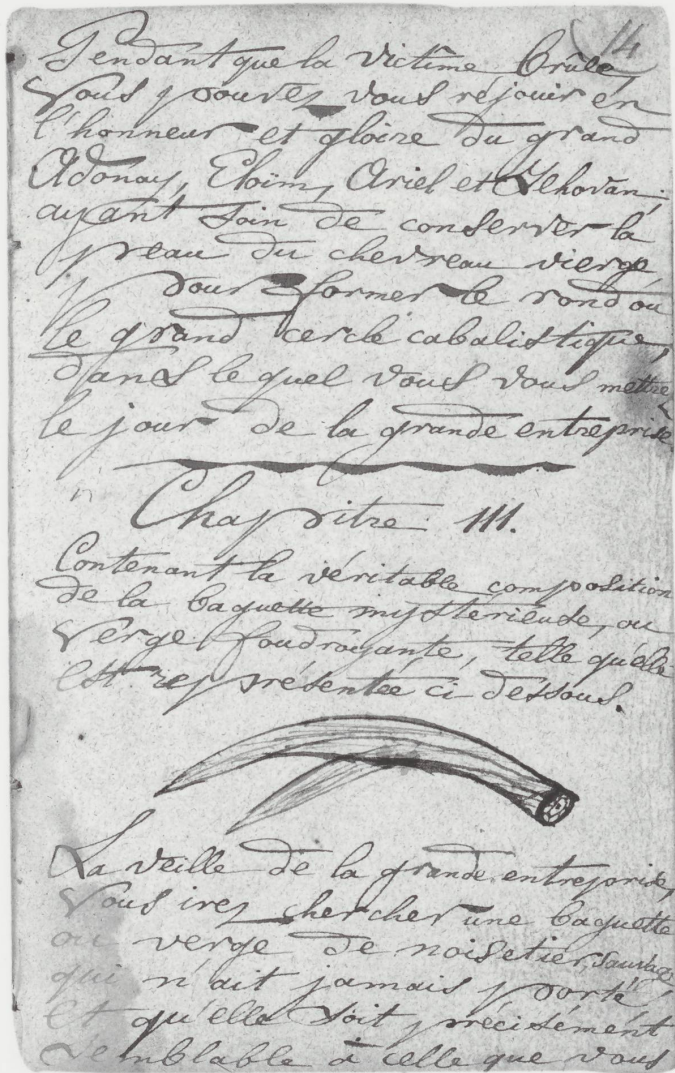 14
Pendant que la victime brûle,
Vous pouvez vous réjouir en
l'honneur et gloire du grand
Adonay, Eloïm, Ariel et Jehovan;
ayant soin de conserver la
peau du chevreau vierge
pour former le rond ou
le grand cercle cabalistique,
dans le quel vous vous mettre
le jour de la grande entreprise
Chapitre III.
Contenant la véritable composition
de la baguette mysterieuse, ou
Verge foudroyante, telle qu'elle
est représentée ci dessous.
La veille de la grande entreprise,
Vous irez chercher une baguette
ou verge de noisetier, sauvage
qui n'ait jamais porté,
Et qu'elle soit précisément
semblable à celle que vous